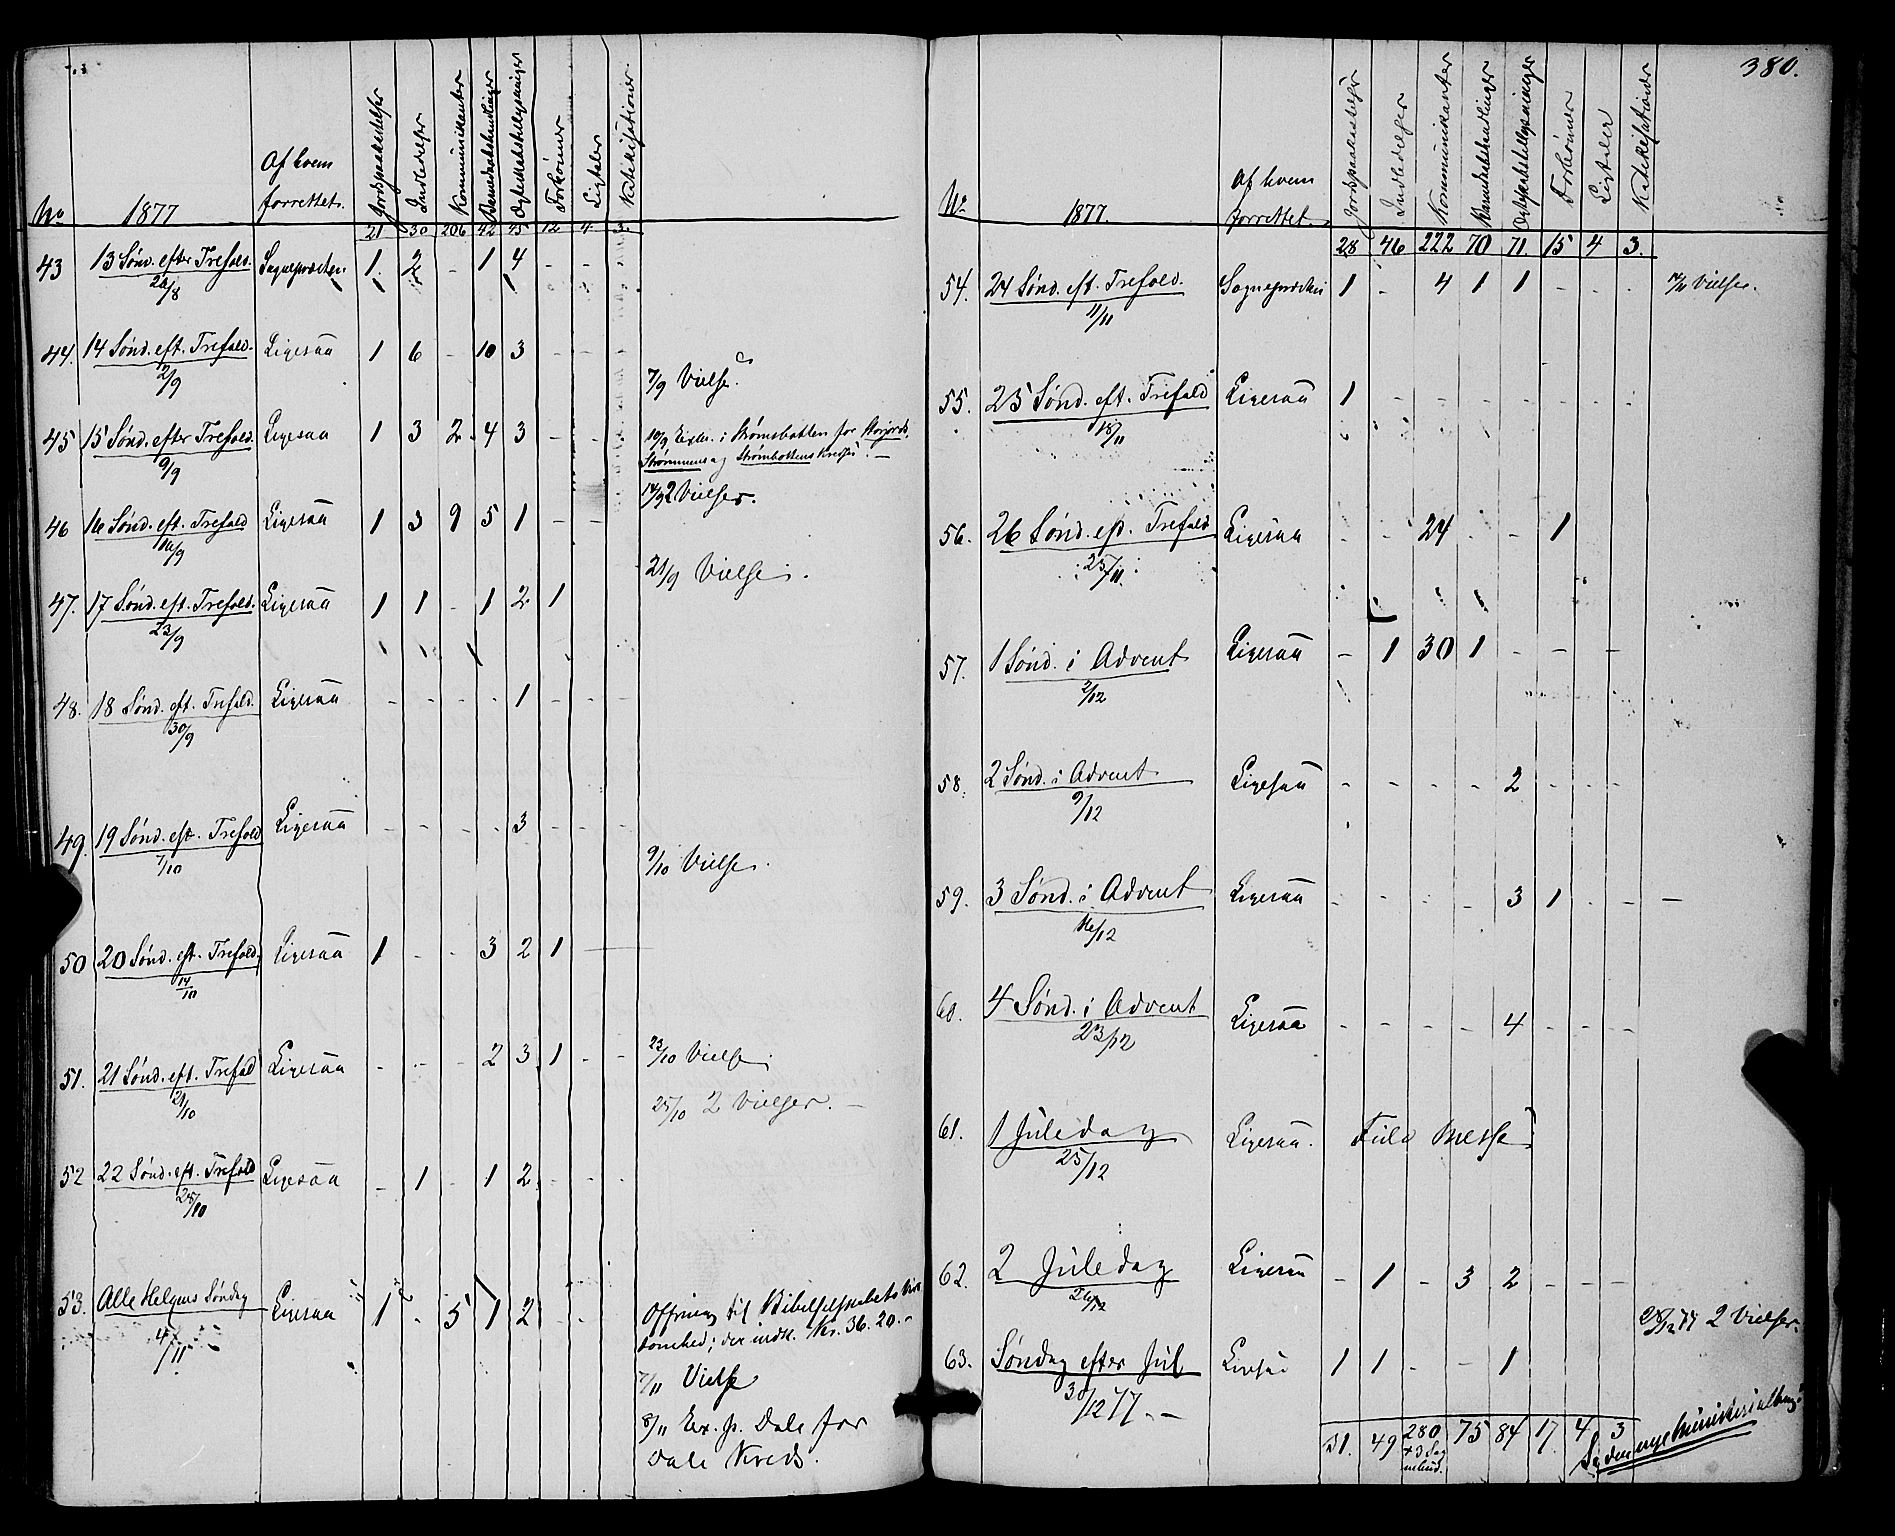 No 1877 Af hvem forrettet. Jordspaakastelser Indledelser Kommunikanter Barnedaabshandlinger Ægteskabstillysninger Forhörer Ligtaler Katekisationer.
21 30 206 42 45 12 4 3.
43 13 Sønd. efter Trefold. Sognepræsten 1. 2 - 1 4 - -
26/8
44. 14 Sønd. eft. Trefold. Ligesaa 1 6 - 10 3 - - -
2/9
7/9 Vielse.
45 15 Sønd. efter Trefold. Ligesaa 1 3 2 4 3 - - -
9/9
10/9 i Strømsbotten for
Strømmens og Strømbottens Kredse. -
14/9 2 Vielser.
46 16 Sønd. eft. Trefold Ligesaa 1 3 9 5 1 - -
16/9
21/9 Vielse.
47. 17 Sønd. eft. Trefold. Ligesaa 1 1 - 1 2 1
23/9
48. 18 Sønd. eft. Trefold. Ligesaa - - - - 1 - - -
30/9
49. 19 Sønd. eft. Trefold Ligesaa - - - - 3 - - -
7/10
9/10 Vielse.
50 20 Sønd. eft. Trefold. Ligesaa 1 - - 3 2 1 -
14/10
51. 21 Sønd. eft. Trefold Ligesaa - - - 2 3 1 - -
21/10
23/10 Vielse
25/10 2 Vielser. -
52 22 Sønd. eft. Trefold Ligesaa - 1 - 1 2 - - -
28/10
53. Alle Helgens Søndag Ligesaa 1 - 5 1 2 - -
4/11
Offring til Bibelselskabets Virk
somhed; der indk. Kr. 36. 20. -
7/11 Vielse
8/11 Ex. p. Dale for
Dale Kreds.
380.
No 1877. Af hvem forrettet. Jordspaakastelser Indledelser Kommunikanter Barnedaabshandlinger Ægteskabstillysninger Forhörer Ligtaler Katekisationer
28 46 222 70 71. 15 4 3.
54. 24 Sønd. eft. Trefold. Sognepræsten 1 - 4 1 1 - - - Vielser.
11/11
55. 25 Sønd. eft. Trefold Ligesaa 1 - - - - - - -
18/11
56. 26 Sønd. eft. Trefold Ligesaa - - 24 - - 1
25/11
57. 1 Sønd. i Advent Ligesaa - 1 30 1 - - -
2/12
58. 2 Sønd. i Advent Ligesaa - - - - 2 - - -
9/12
59. 3 Sønd. i Advent Ligesaa - - - - 3 1 - - -
16/12
60. 4 Sønd. i Advent Ligesaa - - - - 4 - - -
23/12
61. 1 Juledag Ligesaa. Fuld Messe
25/12
62. 2 Juledag Ligesaa - 1 - 3 2 - - -
26/12
28/12 77 2 Vielser.
63. Søndag efter Jul Ligesaa 1 1 - - 1
30/12 77. -
31. 49 280 75 84 17. 4 3
Se den nye Ministerialbog